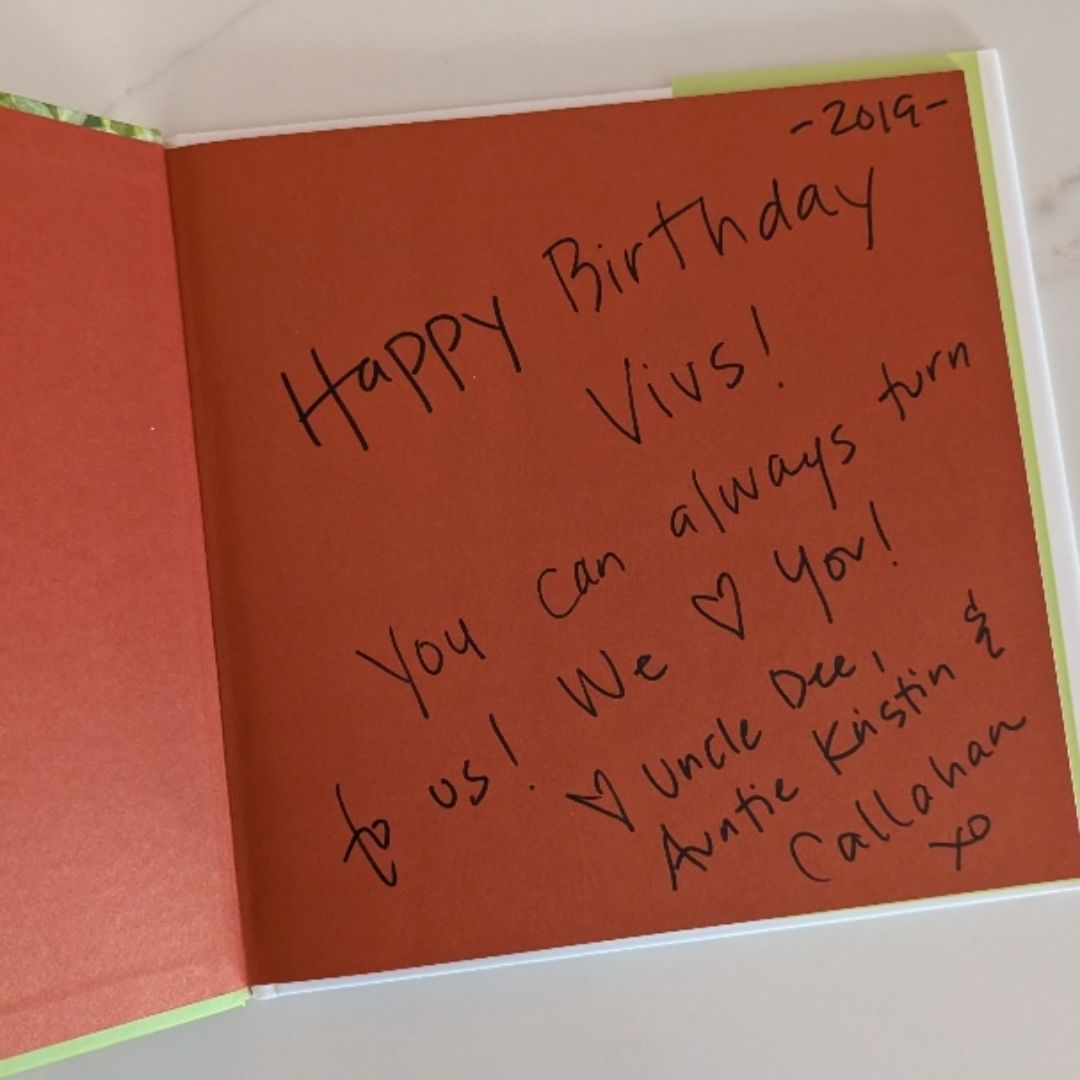 -2019-
Happy Birthday
Vivs!
You can always turn
to us! We ♡ You!
♡ Uncle Dee,
Auntie Kristin &
Callahan
xo